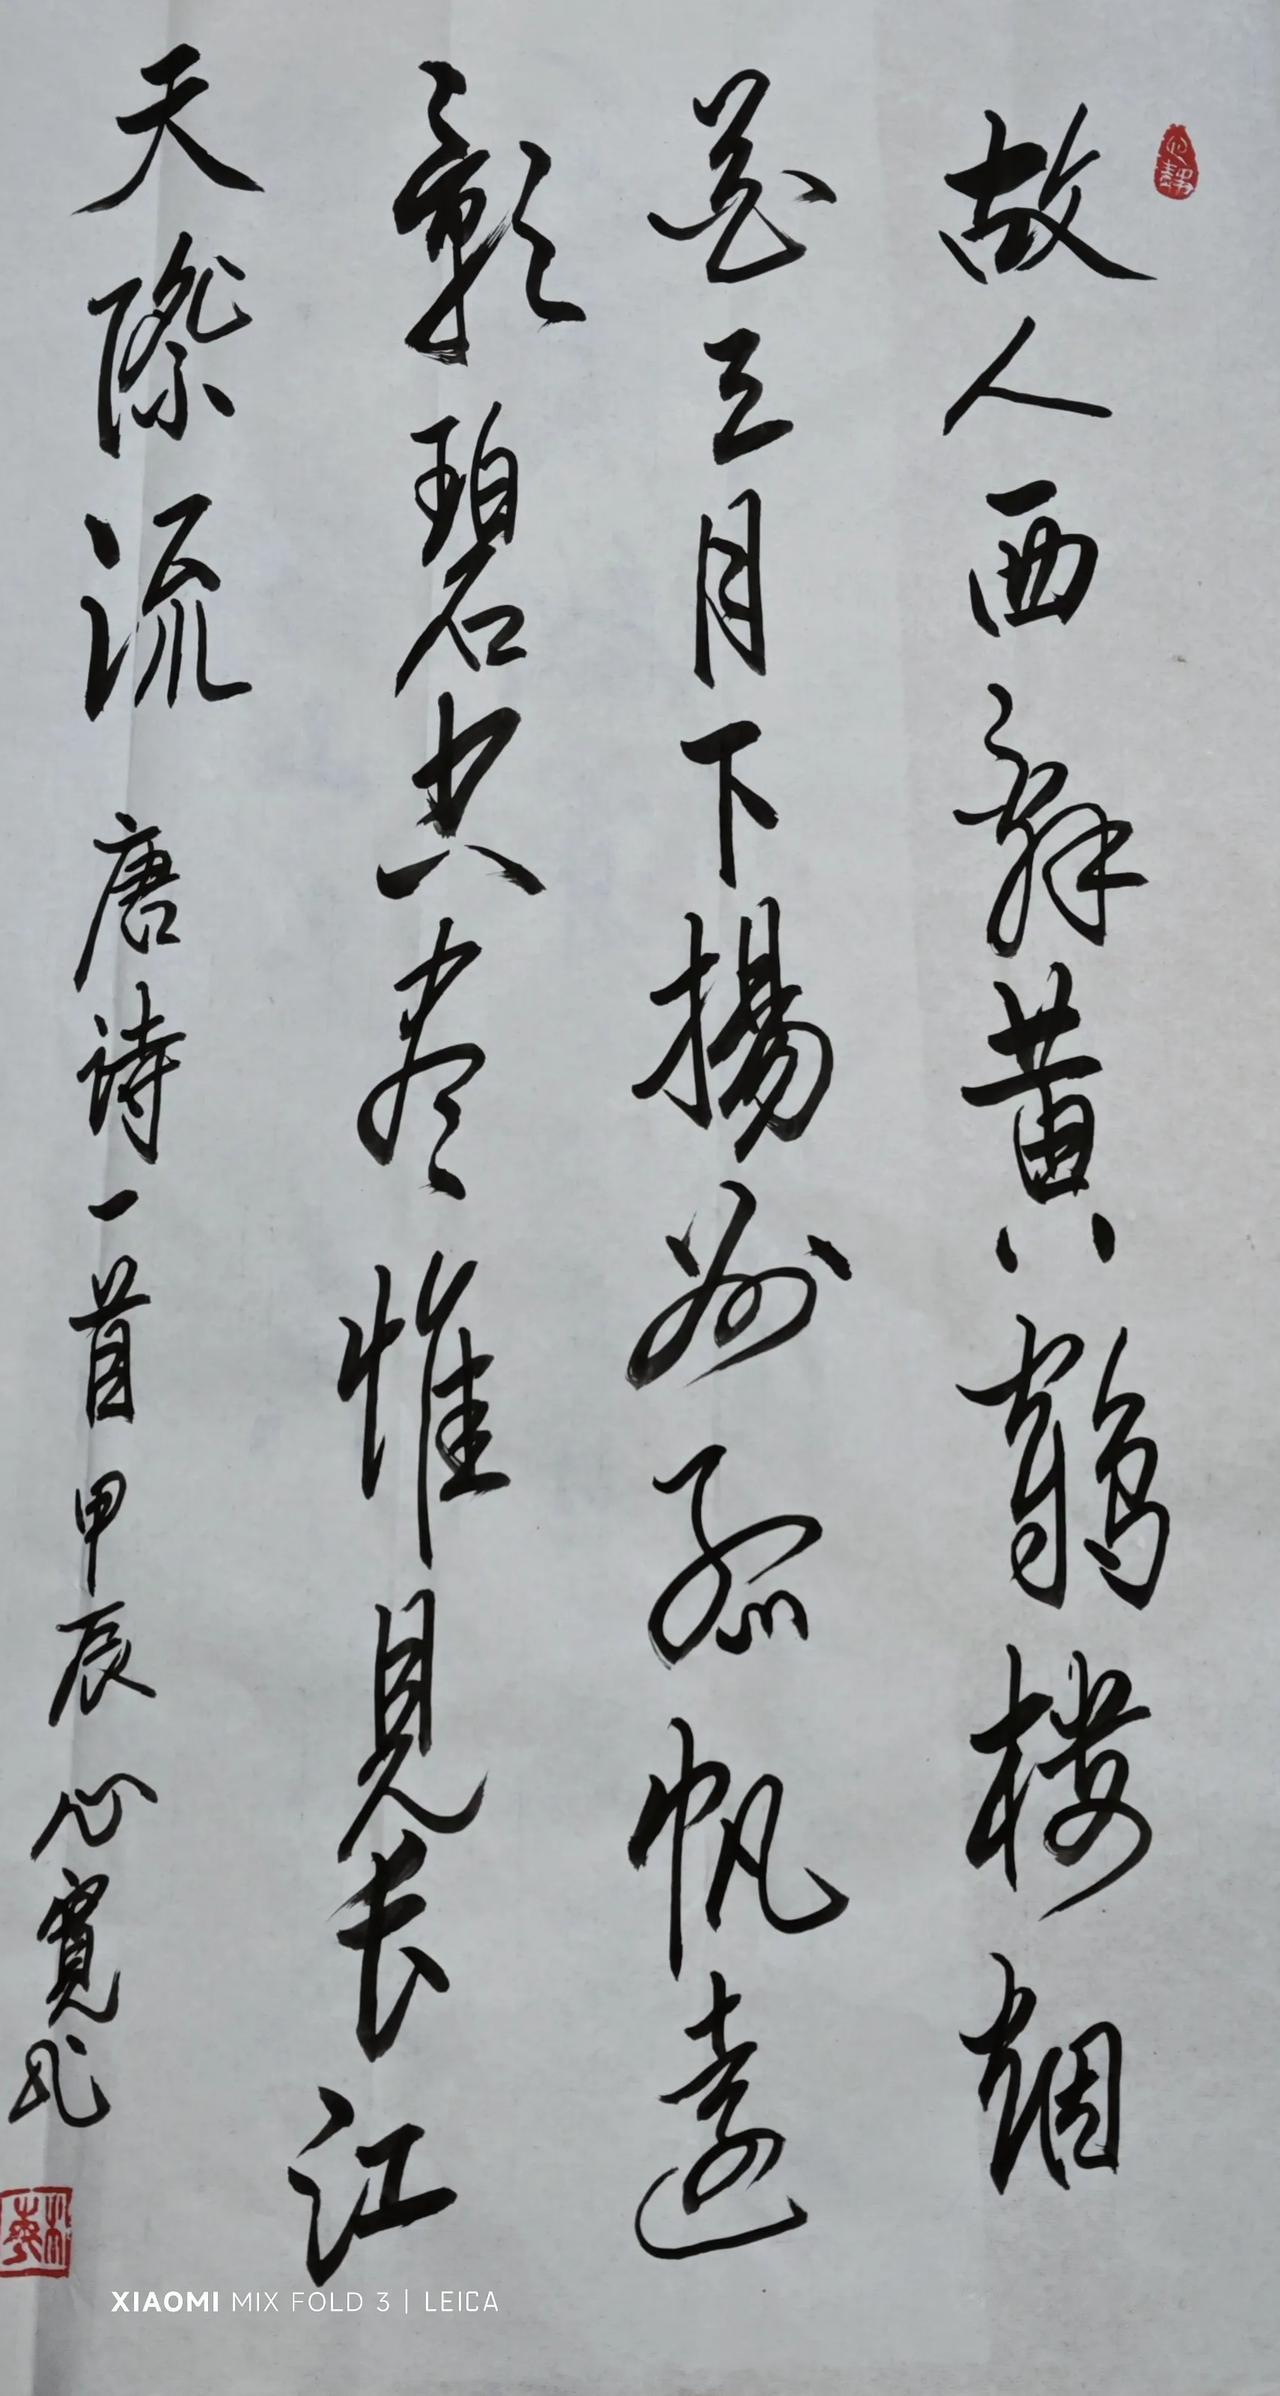 心静
故人西辞黄鶴楼烟
花三月下揚州孤帆遠
影碧空尽惟見长江
天際流 唐诗一首 甲辰 心寛
XIAOMI MIX FOLD 3 | LEICA